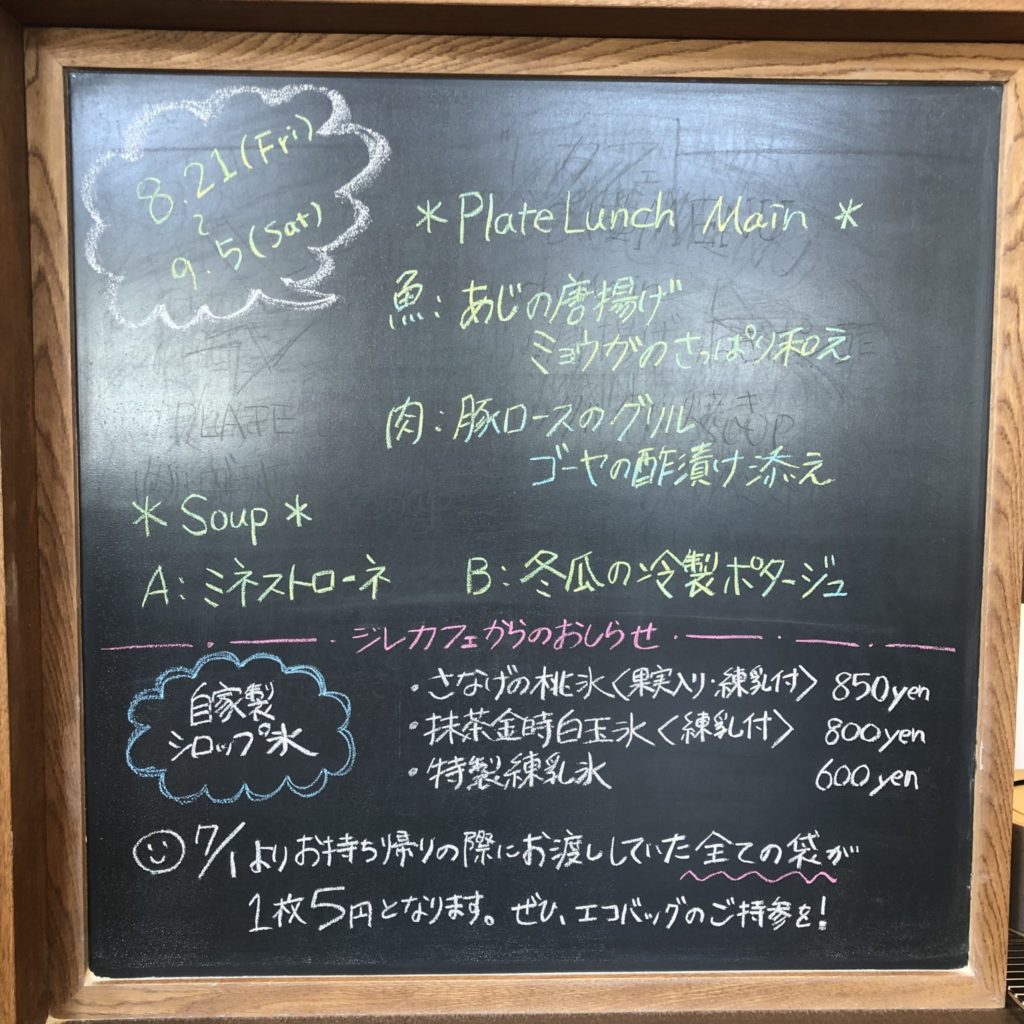 8.21(Fri)
~
9.5(Sat)
* Plate Lunch Main *
魚: あじの唐揚げ
ミョウガのさっぱり和え
肉: 豚ロースのグリル
ゴーヤの酢漬け添え
* Soup *
A: ミネストローネ B: 冬瓜の冷製ポタージュ
ジレカフェからのおしらせ
自家製
シロップ氷
・さなげの桃氷〈果実入り・練乳付〉 850yen
・抹茶金時白玉氷〈練乳付〉 800yen
・特製練乳氷 600yen
7/1よりお持ち帰りの際にお渡ししていた全ての袋が
1枚5円となります。ぜひ、エコバッグのご持参を!